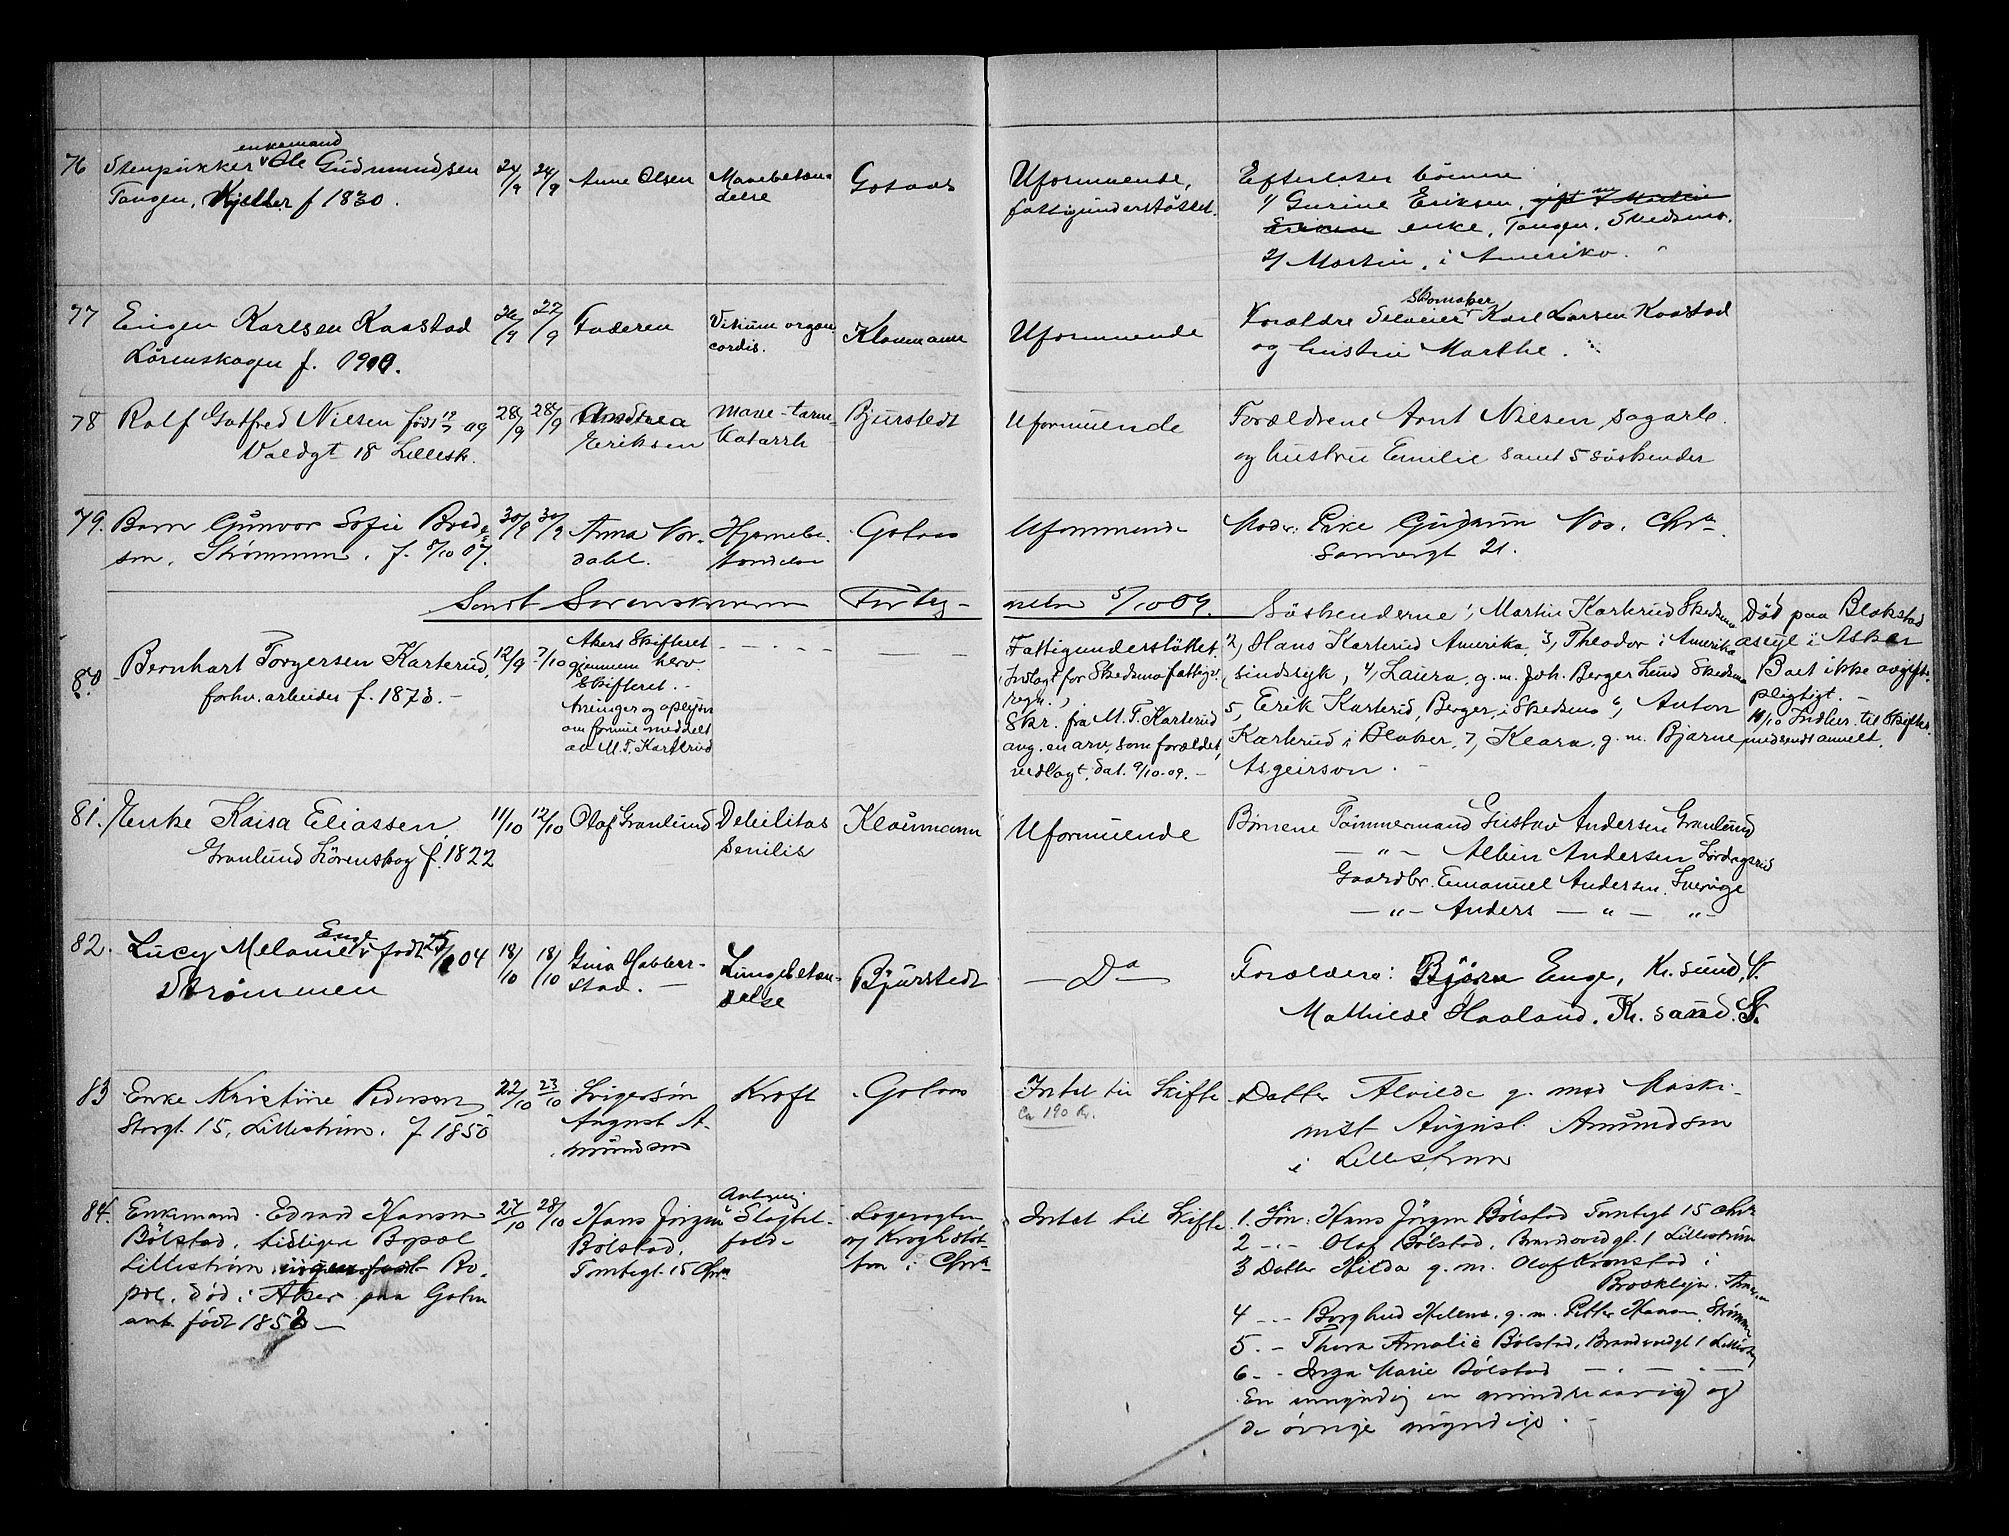 76 Stenpukker enkemand Ole Gudmundsen
Tangen, Kjeller f 1830.
24/9 24/9 Anne Olsen
Mavebetæn-
delse
Gotaas
Uformuende,
fattigunderstøttet.
Efterlater børnene
1/ Gurine Eriksen, gift m Martin
Eriksen enke, Tangen, Skedsmo.
2/ Martin, i Amerika.
77 Eugen Karlsen Kaastad
Lørenskogen f. 1909.
26/9 27/9 Faderen
Vitium organ
cordis.
Klaumann
Uformuende
Forældre Selveier Skomaker Karl Larsen Kaastad
og hustru Marthe.
78 Rolf Gotfred Nielsen født 19/7 09
Voldgt 18 Lillestr.
28/9 28/9 Andrea
Eriksen
Mave-tarm-
Katarrh
Bjurstedt
Uformuende
Forældrene Arnt Nilsen, sagarb.
og hustru Emilie samt 5 søskender
79. Barn Gunvor Sofie Bred-
sen, Strømmen. f. 8/10 07.
30/9 30/9 Anna Nor-
dahl.
Hjernebe-
tændelse
Gotaas
Uformuende
Moder: Pike Gudrun Nos. Chra.
Sannergt 21.
Sendt Sorenskriveren Forteg-
nelse 5/10 09.
80 Bernhart Torgersen Karterud,
forhv. arbeider f. 1873.-
12/9 7/10 Akers Skifteret
gjennem herv.
Skifteret.-
Arvinger og oplysn
om formue meddelt
av M. T. Karterud
Fattigunderstøttet.
(Indlagt for Skedsmo fattigv.
regn.)
Skr. fra M. T. Karterud
ang. en arv, som forældet,
vedlagt, dat. 9/10-09.-
Søskenderne 1, Martin Karterud Skedsmo
2, Hans Karterud Amerika, 3, Theodor i Amerika
(sindssyk, 4, Laura, g.m. Joh. Berger Lund Skedsmo
5, Erik Karterud, Berger, i Skedsmo 6, Anton
Karterud i Blaker, 7, Klara, g.m. Bjarne
Asgeirson.-
Død paa Blakstad
asyl i Asker
Boet ikke avgifts-
pligtigt.-
11/10 Indber. til Skifter.
medsendt anmelt.
81. Enke Kaisa Eliassen,
Granlund Lørenskog f. 1822
11/10 12/10 Olaf Granlund
Debilitas
senilis
Klaumann
Uformuende
Børnene Tømmermand Gustav Andersen Granlund
-"- Albin Andersen Lørdagsrud
Gaardbr. Emanuel Andersen. Sverige
-"- Anders -"- "-
82. Lucy Melanie Enge født 25/1 04
Strømmen
18/10 18/10 Gina Habber-
stad.-
Lungebetæn-
delse
Bjurstedt
- Do -
Forældre: Bjørn Enge, Kr. sund, N.
Mathilde Haaland, Kr. sand. S.
83 Enke Kristine Pedersen
Storgt. 15, Lillestrøm. f 1850
22/10 23/10 Svigersøn
August A-
mundsen
Kræft
Gotaas
Intet til Skifte
ca 190 Kr.
Datter Alvilde g. med Maski-
nist August Amundsen
i Lillestrøm
84. Enkemand Edvard Hansen
Bølstad, tidligere Bopæl
Lillestrøm, ingen fast Bo-
pæl, død i Aker paa Gotm
ant født 1852-
27/10 28/10 Hans Jørgen
Bølstad,
Tomtegt. 15 Chra
Slagtil-
fælde
i Chra
Intet til Skifte
1. Søn: Hans Jörgen Bölstad Tomtegt 15 Chra
2 -"- Olaf Bölstad. Brandvoldgt. 1 Lillestrøm
3 Datter Hilda g.m. Olaf Kronstad i
Brooklyn. Amerika
4 -- Borghild Helene. g.m. Petter Hansen, Strømmen
5. - Thora Amalie Bölstad, Brandvoldgt 1 Lillestr
6 -- Inga Marie Bölstad - . - . -
En umyndig en mindreaarig og
de øvrige myndige.-